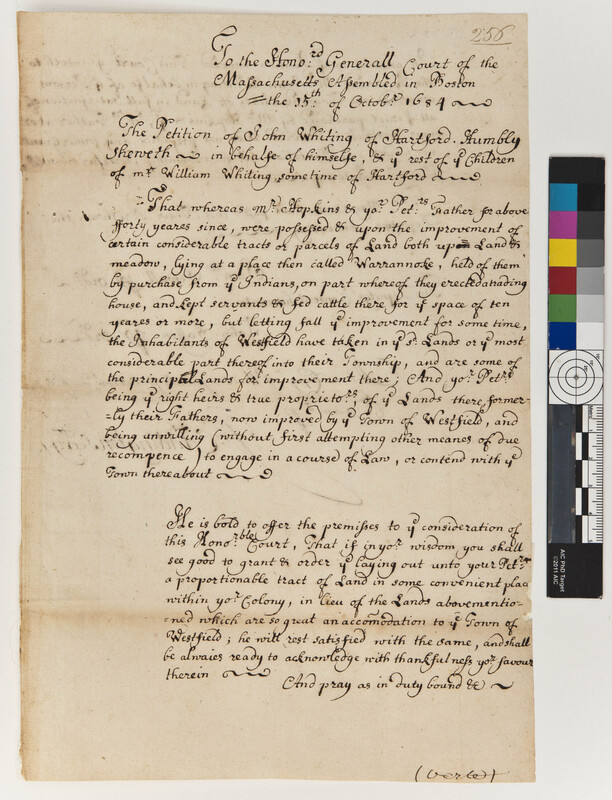 256
To the Hono:rd Generall Court of the
Massachusetts Assembled in Boston
the 15th: of Octobr 1684
The Petition of John Whiting of Hartford. Humbly
sheweth in behalfe of himselfe, & ye rest of ye Children
of mr. William Whiting sometime of Hartford
That whereas mr. Hopkins & yor. Petrs. Father for above
fforty yeares since, were possessed & upon the improvement of
certain considerable tracts or parcels of Land both up Land &
meadow, lying at a place then called Warrannoke, held of them
by purchase from ye Indians, on part whereof they erected a trading
house, and kept servants & fed cattle there for ye space of ten
yeares or more, but letting fall ye improvement for some time,
the Inhabitants of Westfield have taken in ye sd. Lands or ye most
considerable part thereof into their Township, and are some of
the principal Lands for improvement there; And yor. Petrs.
being ye right heirs & true proprietors, of ye Lands there former-
-ly their Fathers, now improved by ye Town of Westfield, and
being unwilling (without first attempting other meanes of due
recompence) to engage in a course of Law, or contend with ye
Town thereabout
He is bold to offer the premisses to ye consideration of
this Hono:rble Court, That if in yor. wisdom you shall
see good to grant & order ye laying out unto your Petrs.
a proportionable tract of Land in some convenient plac
within yor. Colony, in lieu of the Lands abovementio-
-ned which are so great an accomodation to ye Town of
Westfield; he will rest satisfied with the same, and shall
be alwaies ready to acknowledge with thankfulness yor. favour
therein
And pray as in duty bound &c
(verte)
AIC PhD Target
©2011 AIC